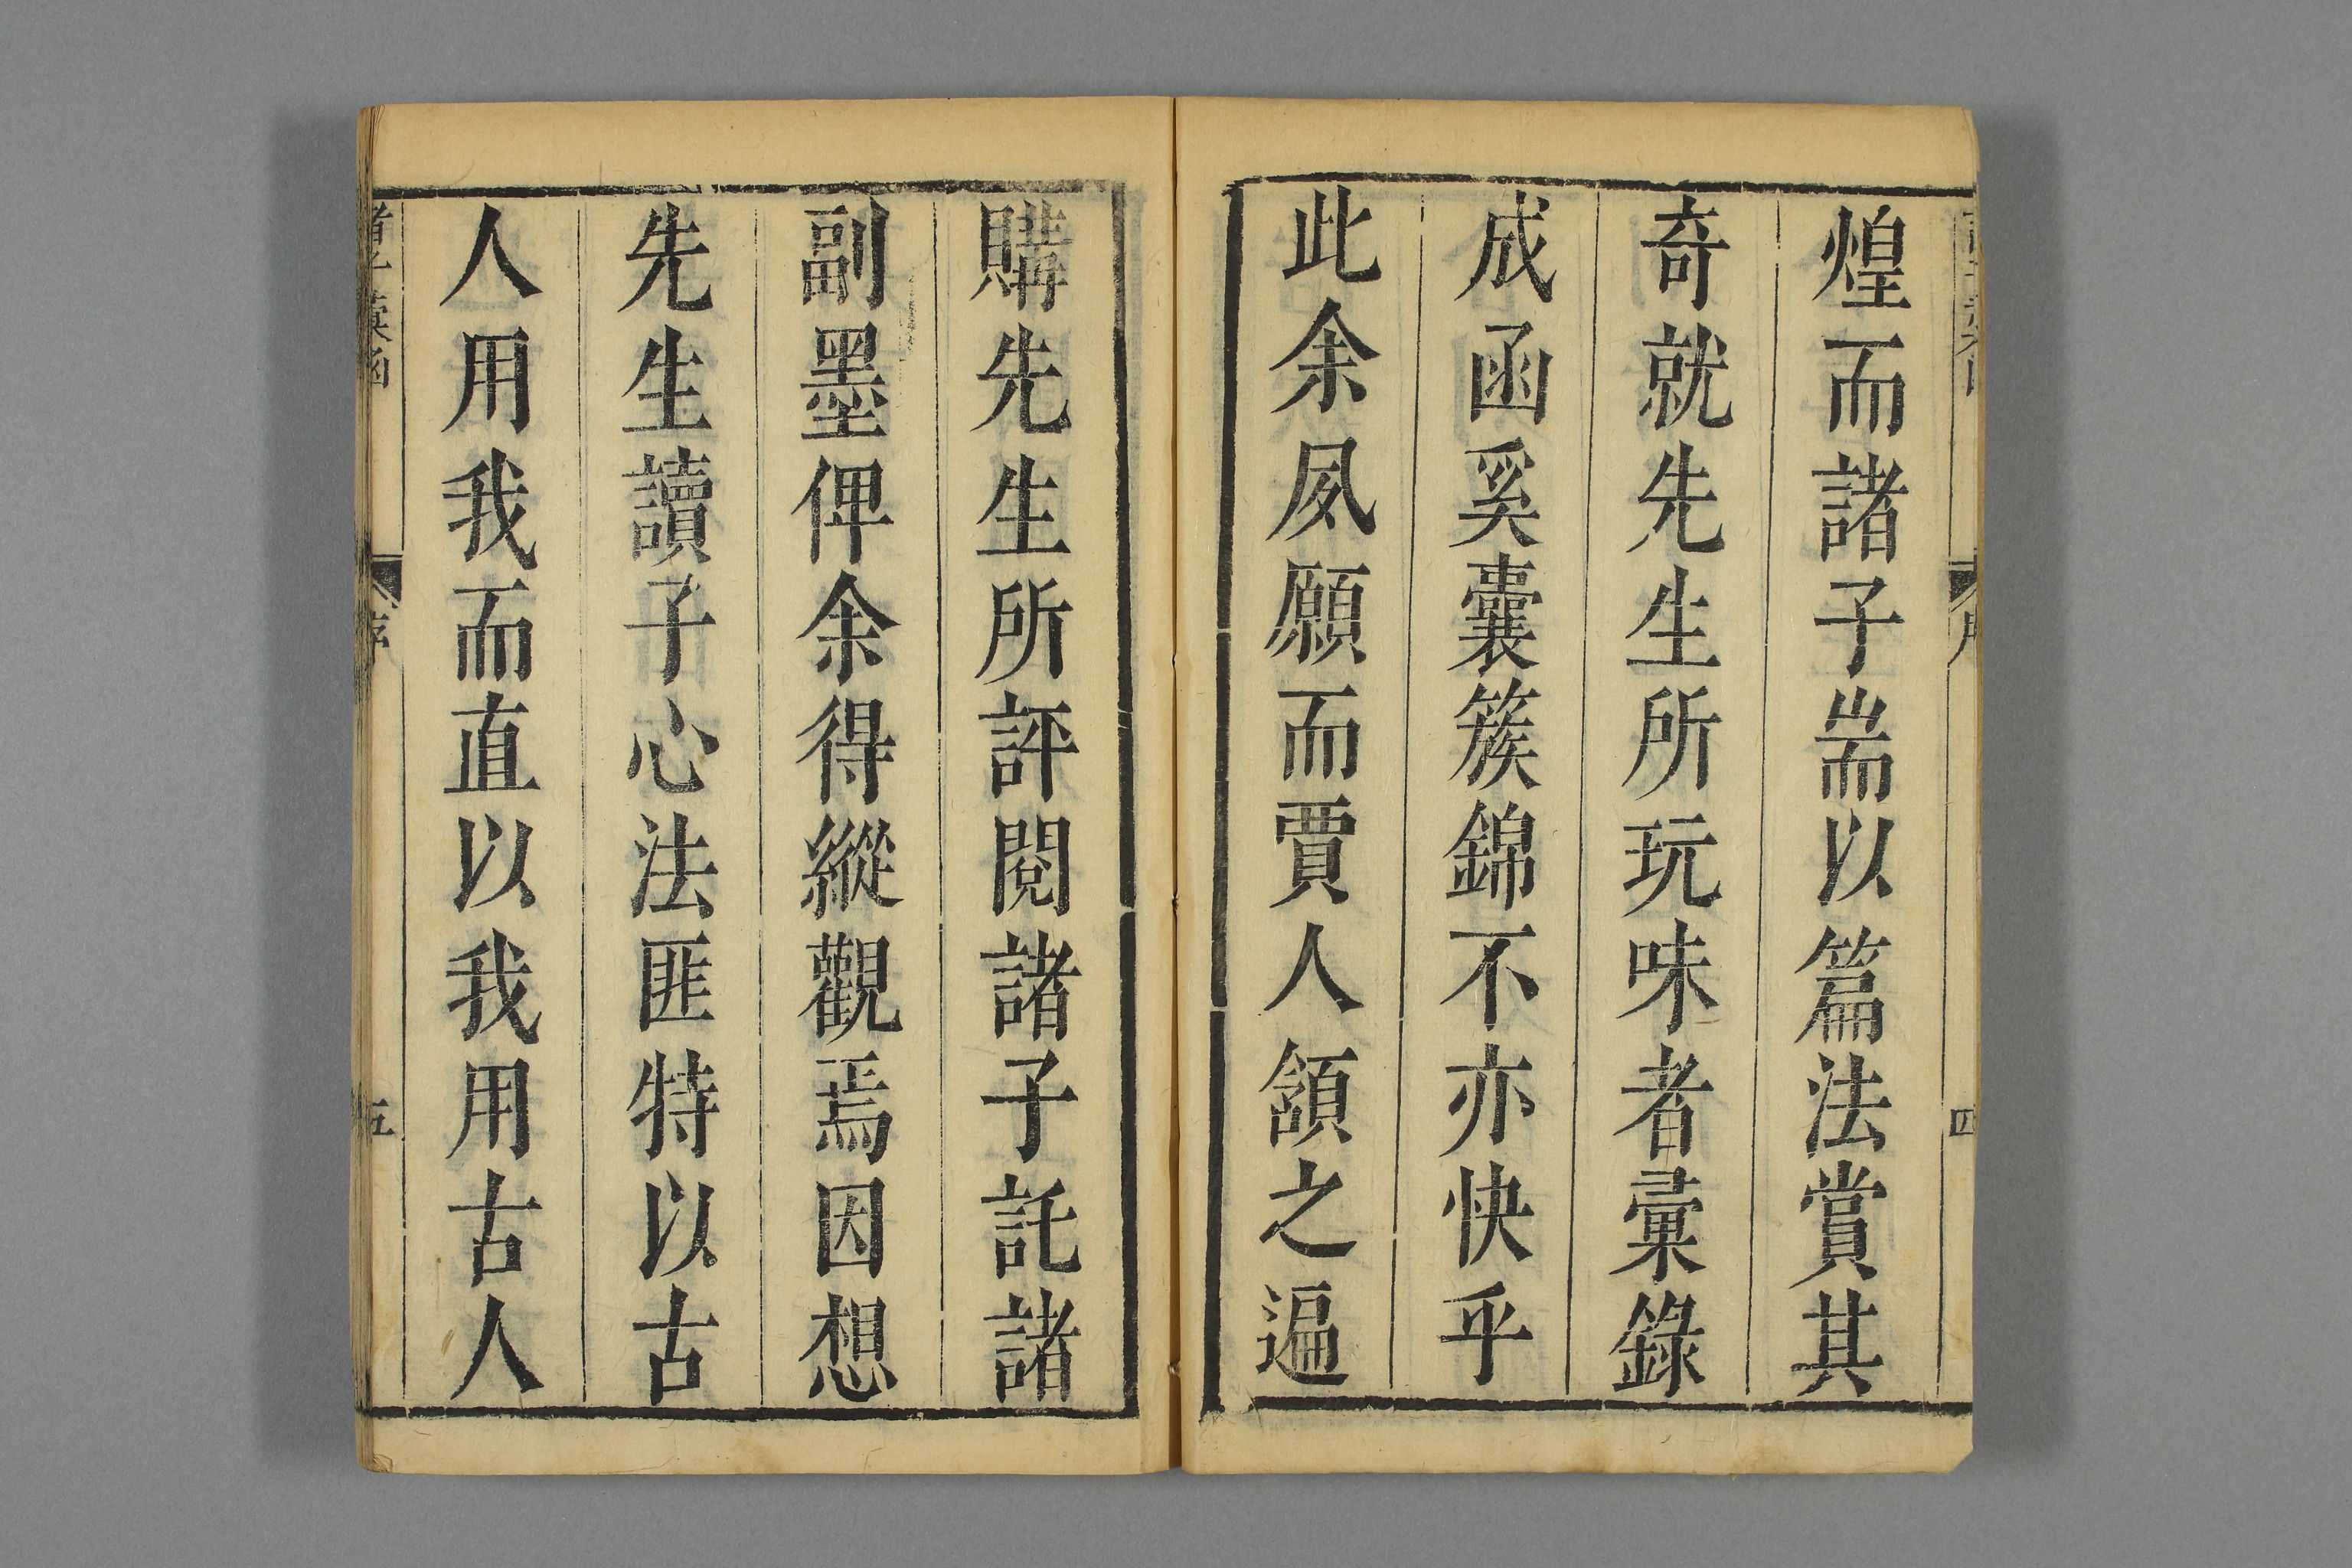 煌而諸子耑以篇法賞其
奇就先生所玩味者彚錄
成函奚囊簇錦不亦快乎
此余夙願而賈人頷之遍
購先生所評閱諸子託諸
副墨俾余得縱觀焉因想
先生讀子心法匪特以古
人用我而直以我用古人
序
五
四